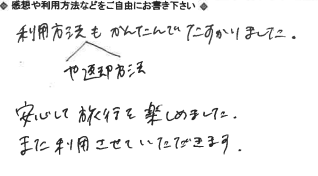 ◆ 感想や利用方法などをご自由にお書き下さい ◆
利用方法も かんたんで たすかりました.
や返却方法
安心して 旅行を 楽しめました.
また 利用させていただきます.